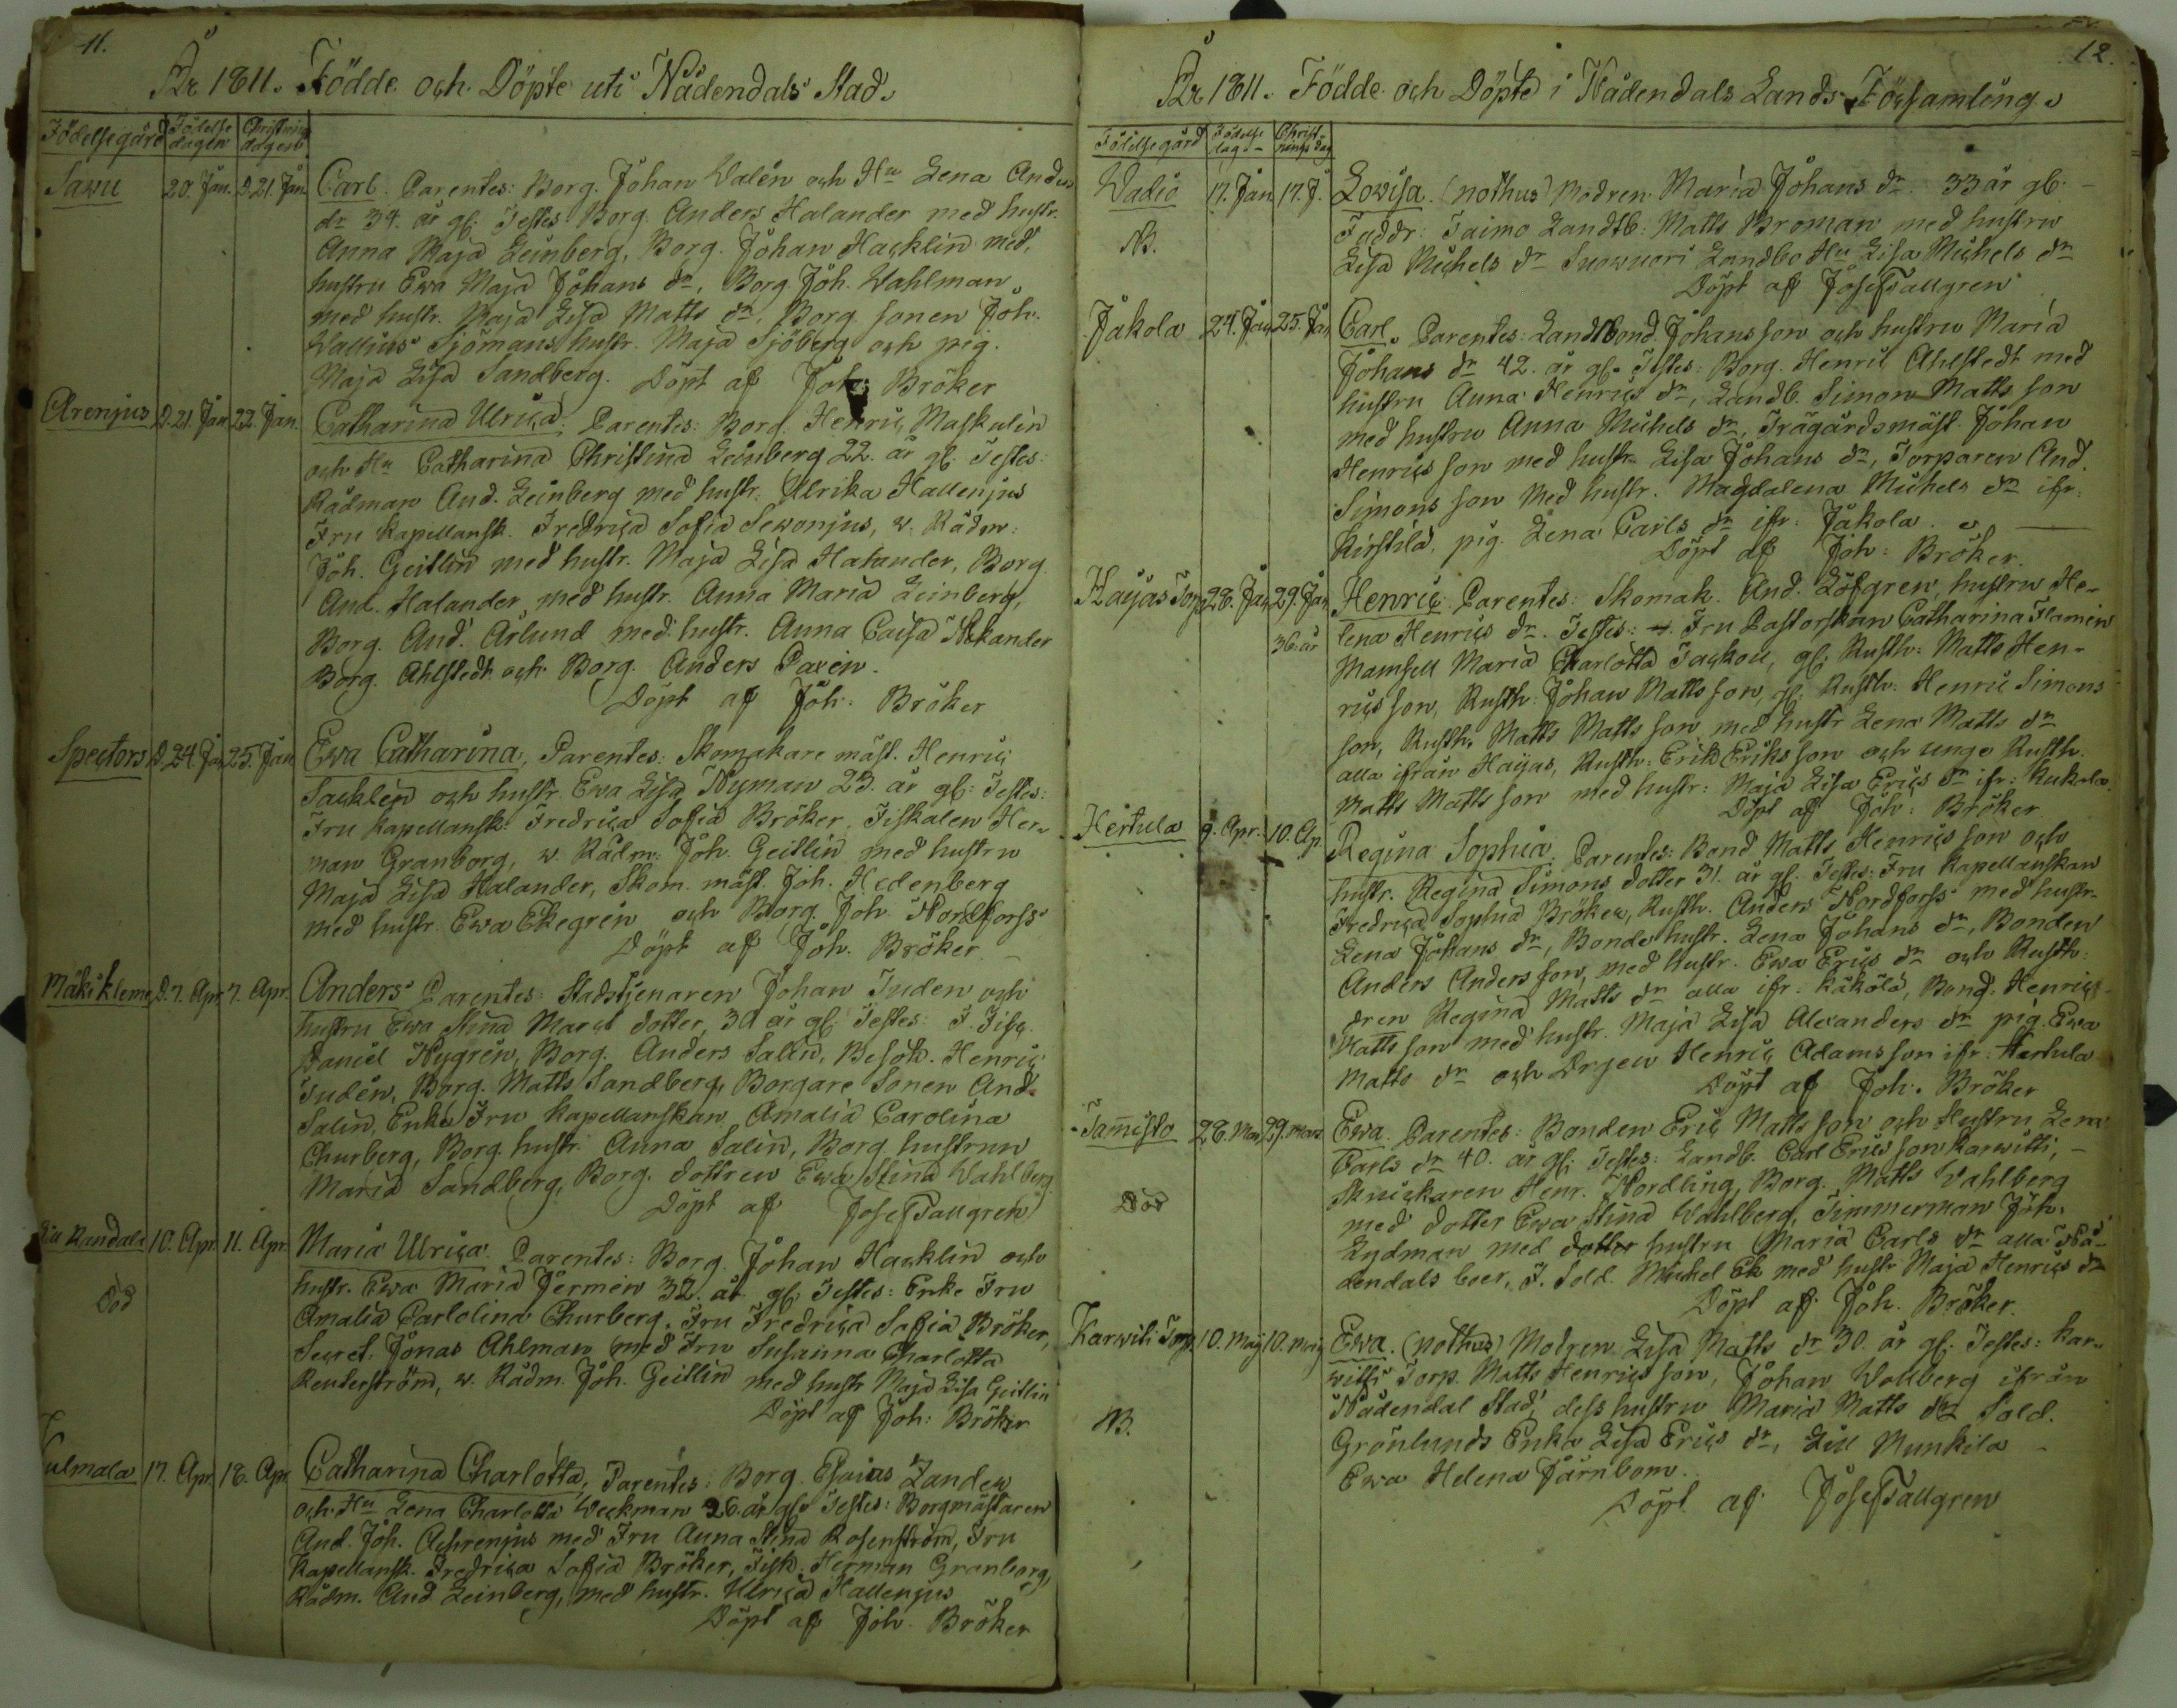 11.
År 1811. Födde och Döpte uti Nådendals Stad.
Födelsegård Födelse dagen Christnings dagen
Sawu 20. Jan. D. 21. Jan. Carl. Parentes: Borg. Johan Walén och Hu Lena Anders
dr 34. år gl. Testes: Borg. Anders Halander med hustr.
Anna Maja Leinberg, Borg. Johan Hacklin med
hustru Ewa Maja Johans dr, Borg. Joh. Wahlman
med hustr. Maja Lisa Matts dr, Borg. sonen Joh.
Wallius Sjömans hustr. Maja Sjöberg och pig.
Maja Lisa Sandberg. Döpt af Joh: Bröker
Arenius D. 21. Jan. 22. Jan. Catharina Ulrica. Parentes: Borg. Henric Maskulin
och Hu Catharina Christina Leinberg 22. år gl. Testes:
Rådman And. Leinberg med hustr. Ulrika Hallenius
Fru Kapellansk. Fredrica Sofia Sewonius, w. Rådm:
Joh. Geitlin med hustr. Maja Lisa Halander, Borg.
And. Halander med hustr. Anna Maria Leinberg,
Borg. And. Arlund med hustr. Anna Caisa
Borg. Ahlstedt och Borg. Anders Paxén.
Döpt af Joh. Bröker
Spectors D. 24. Jan. 25. Jan. Ewa Catharina, Parentes: Skomakare mäst. Henric
Sacklén och hustr. Ewa Lisa Nyman 23. år gl: Testes:
Fru Kapellansk: Fredrica Sofia Bröker, Fiskalen Her-
man Granborg, w. Rådm: Joh. Geitlin med hustru
Maja Lisa Halander, Skom. mäst. Joh. Hedenberg
med hustr. Ewa Ekegrén och Borg. Joh. Nordforss
Döpt af Joh. Bröker.
Mäki kleme D. 7. Apr. 7. Apr. Anders Parentes: Stadstjenaren Johan Juden och
hustru Ewa Stina Marcs dotter, 30 år gl. Testes: F. Fisc.
Daniel Nygrén, Borg. Anders Salin, Besök. Henric
Judén, Borg. Matts Sandberg, Borgare Sonen And.
Salin, Enke Fru Kapellanskan Amalia Carolina
Churberg, Borg. hustr. Anna Salin, Borg. hustrun
Maria Sandberg, Borg. dottren Ewa Stina Wahlberg.
Döpt af Jos: Tallgren
Randala 10. Apr. 11. Apr. Maria Ulrica. Parentes: Borg. Johan Hacklin och
Död hustr. Ewa Maria Jermén 32. år gl. Testes: Enke Fru
Amalia Carlolina Churberg, Fru Fredrica Sofia Bröker,
Secret. Jonas Ahlman med Fru Susanna Charlotta
Reuterström, w. Rådm. Joh. Geitlin med hustr Maja Lisa Geitlin
Döpt af Joh: Bröker
Kulmala 17. Apr. 18. Apr. Catharina Charlotta, Parentes: Borg. Esaias Zanden
och Hu Lena Charlotta Weckman 26. år gl. Testes: Borgmästaren
And. Joh. Achrenius med Fru Anna Stina Rosenström, Fru
Kapellansk. Fredrica Sofia Bröker, Fisk. Herman Granborg,
Rådm. And Leinberg, med hustr. Ulrica Hallenius
Döpt af Joh. Bröker
12.
År 1811. Födde och Döpte i Nådendals Lands Församling.
Födelsegård Födelse dag Christnings dag
Wadio 17. Jan. 17. J. Lowisa. (nothus) Modren Maria Johans dr. 33 år gl.
NB. Faddr: Taimo Landtb: Matts Broman med hustru
Lisa Michels dr Suowuori Landbo Hu Lisa Michels dr
Döpt af Jos: Tallgren
Jakola 24. Jan. 25. Jan Carl. Parentes: Landtbond. Johans son och hustru Maria
Johans dr 42. år gl. Testes: Borg. Henric Ahlstedt med
hustru Anna Henrics dr, Landb. Simon Matts son
med hustru Anna Michels dr, Trägårdsmäst. Johan
Henrics son med hustr. Lisa Johans dr, Torparen And.
Simons son med hustr. Magdalena Michels dr ifr:
Kirstilä, pig. Lena Carls dr ifr: Jakola.
Döpt af Joh: Bröker.
Hayas Torp 28. Jan. 29. Jan Henric. Parentes: Skomak. And. Löfgren, hustru He-
36. år lena Henrics dr. Testes: Fru Pastorskan Catharina Flamén
Mamsell Maria Charlotta Jackou, gl. Rusth: Matts Hen-
rics son, Rusth: Johan Matts son, gl: Rusth. Henric Simons
son, Rusth. Matts Matts son med hustr Lena Matts dr
alla ifrån Hayas, Rusth: Erik Eriks son och unge Rusth.
Matts Matts son med hustr: Maja Lisa Erics dr ifr: Kukola
Döpt af Joh: Bröker.
Hertula 9. Apr. 10. Ap. Regina Sophia. Parentes: Bond Matts Henrics son och
hustr. Regina Simons dotter 31. år gl. Testes: Fru Kapellanskan
Fredrica Sophia Bröker, Rusth. Anders Nordforss med hustr.
Lena Johans dr, Bonde hustr. Lena Johans dr, Bonden
Anders Anders son, med hustr. Ewa Erics dr och Rusth:
dren Regina Matts dr alla ifr: Käkölä, Bond: Henric
Matts son med hustr. Maja Lisa Alexanders dr pig. Ewa
Matts dr och Drgen Henric Adams son ifr: Hertula
Döpt af Joh. Bröker
Tamisto 28. Mars 29. mars Ewa. Parentes: Bonden Eric Matts son och Hustru Lena
Carls dr 40. år gl. Testes: Landb. Carl Erics son Karwitti,
Död Snickaren Henr. Nordling, Borg. Matts Wahlberg
med dotter Ewa Stina Wahlberg, Timmerman Joh.
Lydman med dotter hustru Maria Carls dr alla Nå-
dendals boer, F. Sold. Michel Ek med hustr Maja Henrics dr
Döpt af Joh. Bröker.
Karwiti Torp. 10. Maj 10. maj Ewa. (nothus) Modren Lisa Matts dr 30. år gl. Testes: Kar-
witti Torp. Matts Henrics son, Johan Wallberg ifrån
NB. Nådendal Stad, dess hustru Maria Matts dr Sold.
Grönlunds Enka Lisa Erics dr, Munkila
Ewa Helena Järnbom.
Döpt af Jos: Tallgren